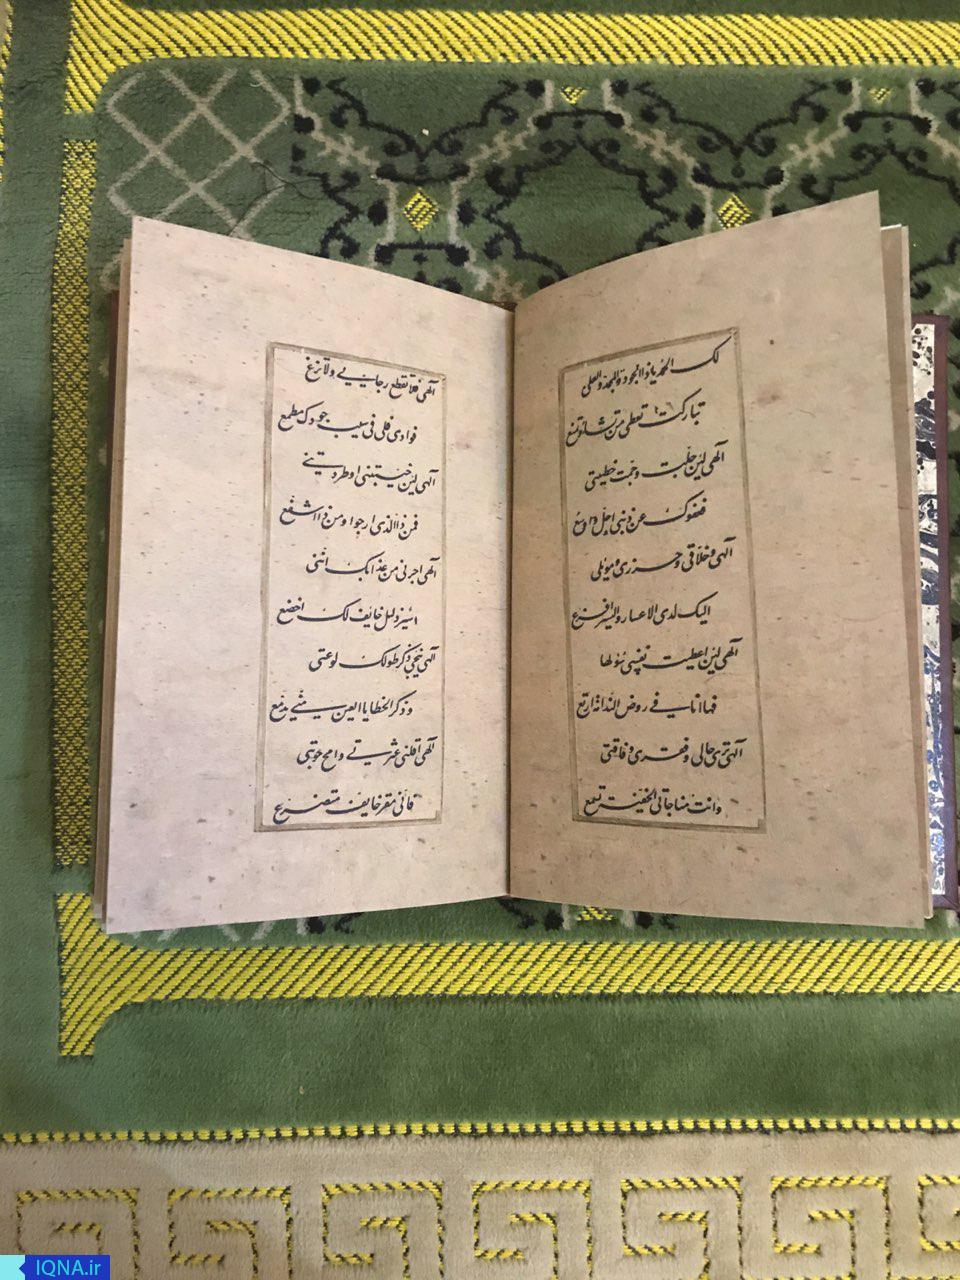 لک الحمد یا ذا الجود و المجد و العلی
تبارکت تعطی من تشا و تمنع
آلهی لئن جلت و جمت خطیئتی
فعفوک عن ذنبی اجل و اوسع
آلهی و خلاقی و حرزی و موئلی
الیک لدی الاعسار و الیسر افزع
آلهی لئن اعطیت نفسی سؤلها
فها انا فی روض الندامة ارتع
آلهی تری حالی و فقری و فاقتی
و انت مناجاتی الخفیة تسمع
آلهی فلا تقطع رجایی و لا تزغ
فوادی فلی فی سیب جودک مطمع
آلهی لئن خیبتنی او طردتنی
فمن ذا الذی ارجوا و من ذا اشفع
آلهی اجرنی من عذابک اننی
اسیر ذلیل خایف لک اخضع
آلهی ینجی ذکر طولک لوعتی
و ذکر الخطایا العین منی یدمع
آلهی اقلنی عثرتی و امح حوبتی
فانی مقر خایف متضرع
IQNA.ir